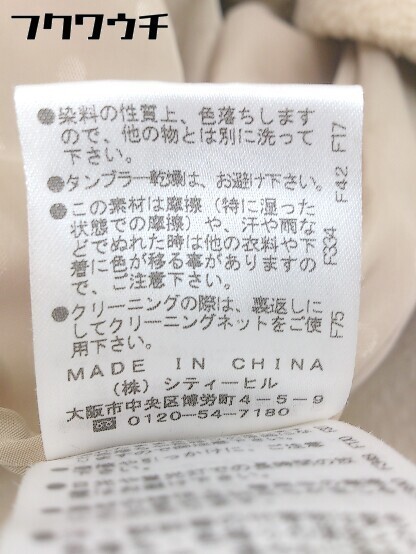 フクワウチ
●染料の性質上、色落ちします
ので、他の物とは別に洗って
下さい。
●タンブラー乾燥は、お避け下さい。
●この素材は摩擦（特に湿った
状態での摩擦）や、汗や雨な
どでぬれた時は他の衣料や下
着に色が移る事がありますの
で、ご注意下さい。
●クリーニングの際は、裏返しに
してクリーニングネットをご使
用下さい。
MADE IN CHINA
（株）シティーヒル
大阪市中央区博労町4-5-9
0120-54-7180
F17
F42
F334
F75